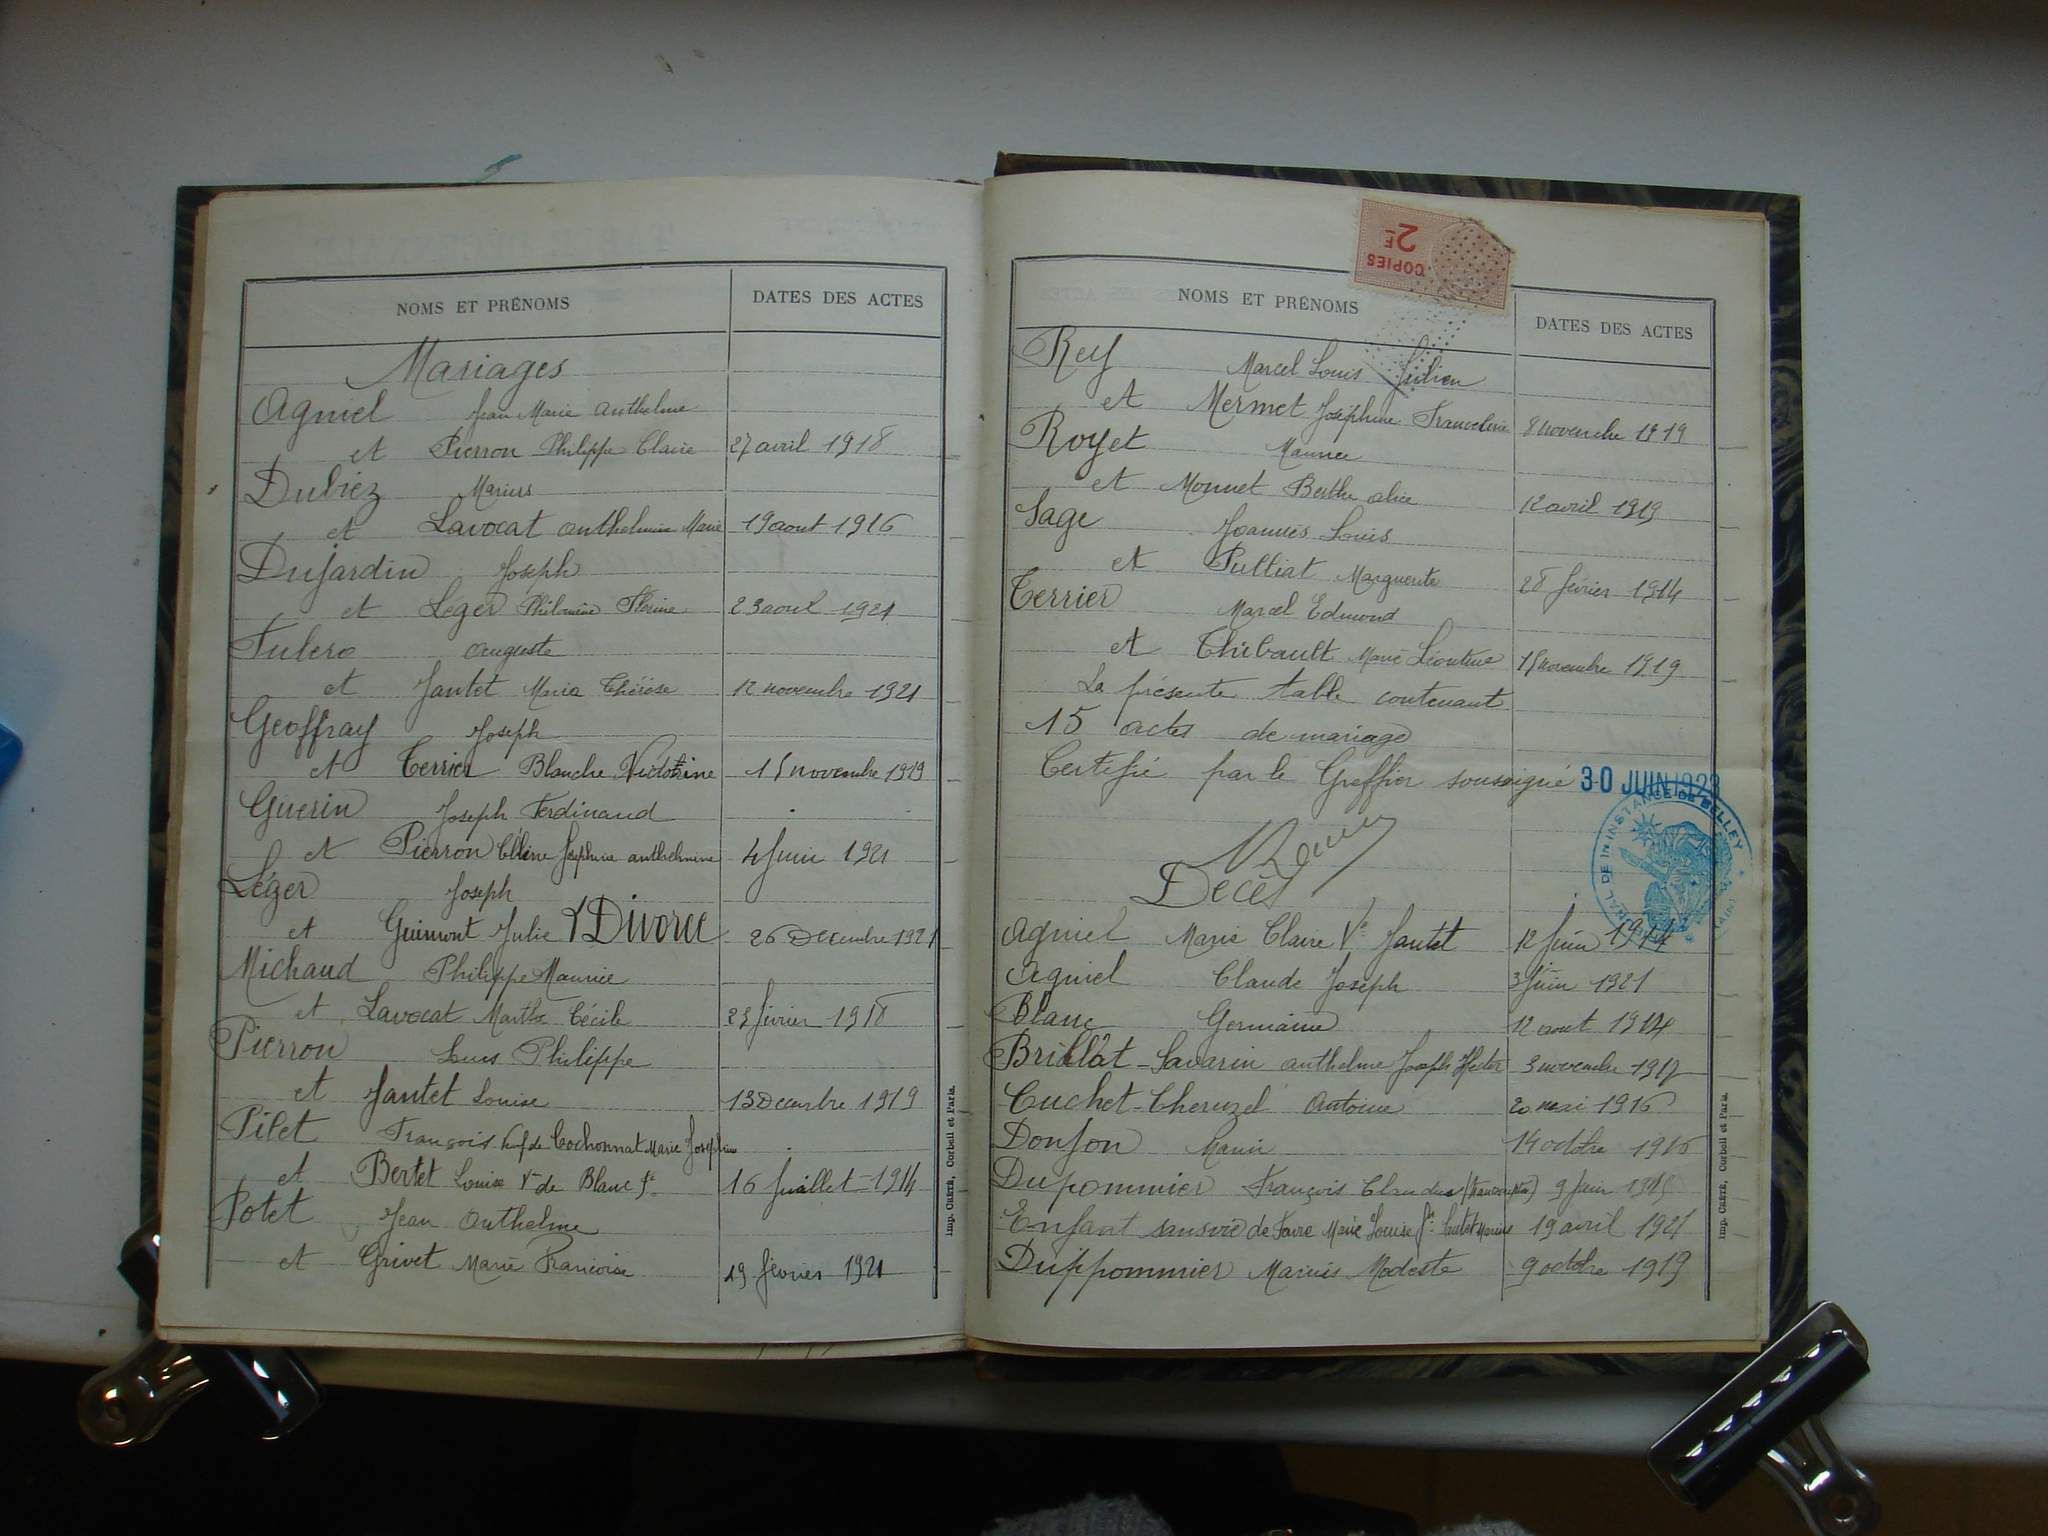 NOMS ET PRÉNOMS DATES DES ACTES
Mariages
Agniel Jean Marie Anthelme
et Pierron Philippe Claire 27 avril 1918
Dubiez Marius
et Lavocat Anthelmine Marie 19 aout 1916
Dujardin Joseph
et Léger Philomène 23 aout 1921
Fulero Auguste
et Jantet Maria Thérèse 12 novembre 1921
Geoffray Joseph
et Terrier Blanche Victorine 15 novembre 1919
Guerin Joseph Ferdinand
et Pierron Joséphine anthelmine 4 Juin 1921
Léger Joseph
et Guimont Julie Divorce 26 Decembre 1921
Michaud Philippe Maurice
et Lavocat Marthe Cécile 23 février 1918
Pierron Louis Philippe
et Jantet Louise 13 Decembre 1919
Pilet François Veuf de Cochonnat Marie Joséphine
et Bertet Louise Vve de Blanc 16 Juillet 1914
Potet Jean Anthelme
et Grivet Marie Francoise 19 février 1921
Imp. CRÉTÉ, Corbeil et Paris.
COPIES
2F
NOMS ET PRÉNOMS DATES DES ACTES
Rey Marcel Louis Julien
et Mermet Joséphine Franceline 8 novembre 1919
Royet Maurice
et Monnet Berthe alice 12 avril 1919
Sage Joannès Louis
et Pulliat Marguerite 28 février 1914
Terrier Marcel Edmond
et Thibault Marie Léontine 15 novembre 1919
La présente table contenant
15 actes de mariage
Certifié par le Greffier soussigné 30 JUIN 1923
TRIBUNAL DE 1re INSTANCE DE BELLEY (AIN)
Decès
Agniel Marie Claire Ve Jantet 12 Juin 1914
Agniel Claude Joseph 3 Juin 1921
Blanc Germaine 12 aout 1914
Brillat-Savarin Anthelme Joseph Hector 3 novembre 1917
Cuchet-Cheruzel Antoine 20 mai 1916
Donjon Marin 14 octobre 1916
Dupommier François Claudius (transcription) 9 Juin 1915
Enfant sans vie de Favre Marie Louise fe Jantet Marius 19 avril 1921
Duppommier Marius Modeste 9 octobre 1919
Imp. CRÉTÉ, Corbeil et Paris.